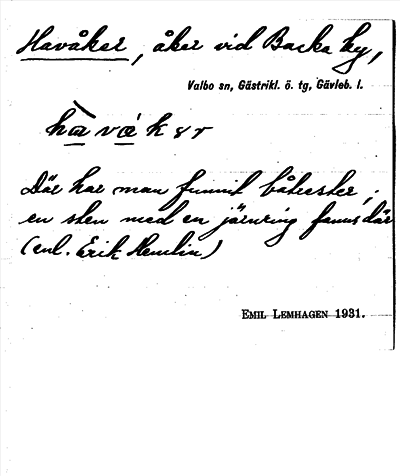 Havåker, åker vid Backa by,
Valbo sn, Gästrikl. ö. tg, Gävleb. l.
hàvåkər
Där har man funnit båtrester,
en sten med en järnring fanns där
(enl. Erik Hemlin)
EMIL LEMHAGEN 1931.